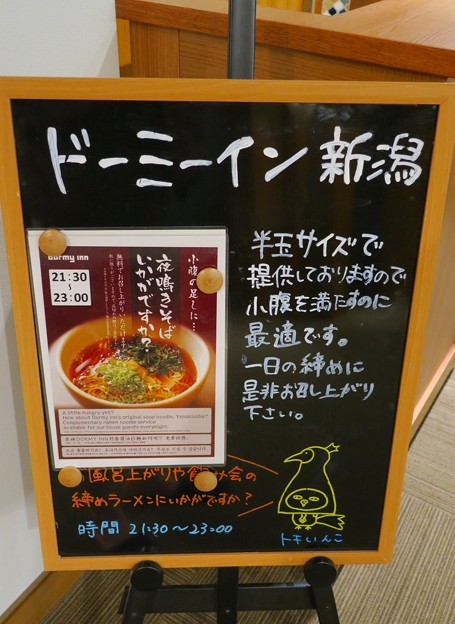 ドーミーイン 新潟
半玉サイズで
提供しておりますので
小腹を満たすのに
最適です。
一日の締めに
是非お召し上がり
下さい。
DORMY INN
21:30
～
23:00
小腹の足しに…
夜鳴きそば
いかがですか？
無料でお召し上がりいただけます
A little hungry yet?
How about Dormy Inn's original soup noodle, Yonakisoba?
Complimentary ramen noodle service
available for our house guests everynight.
風呂上がりや飲み会の
締めラーメンにいかがですか？
時間 21:30～23:00
トキいんこ